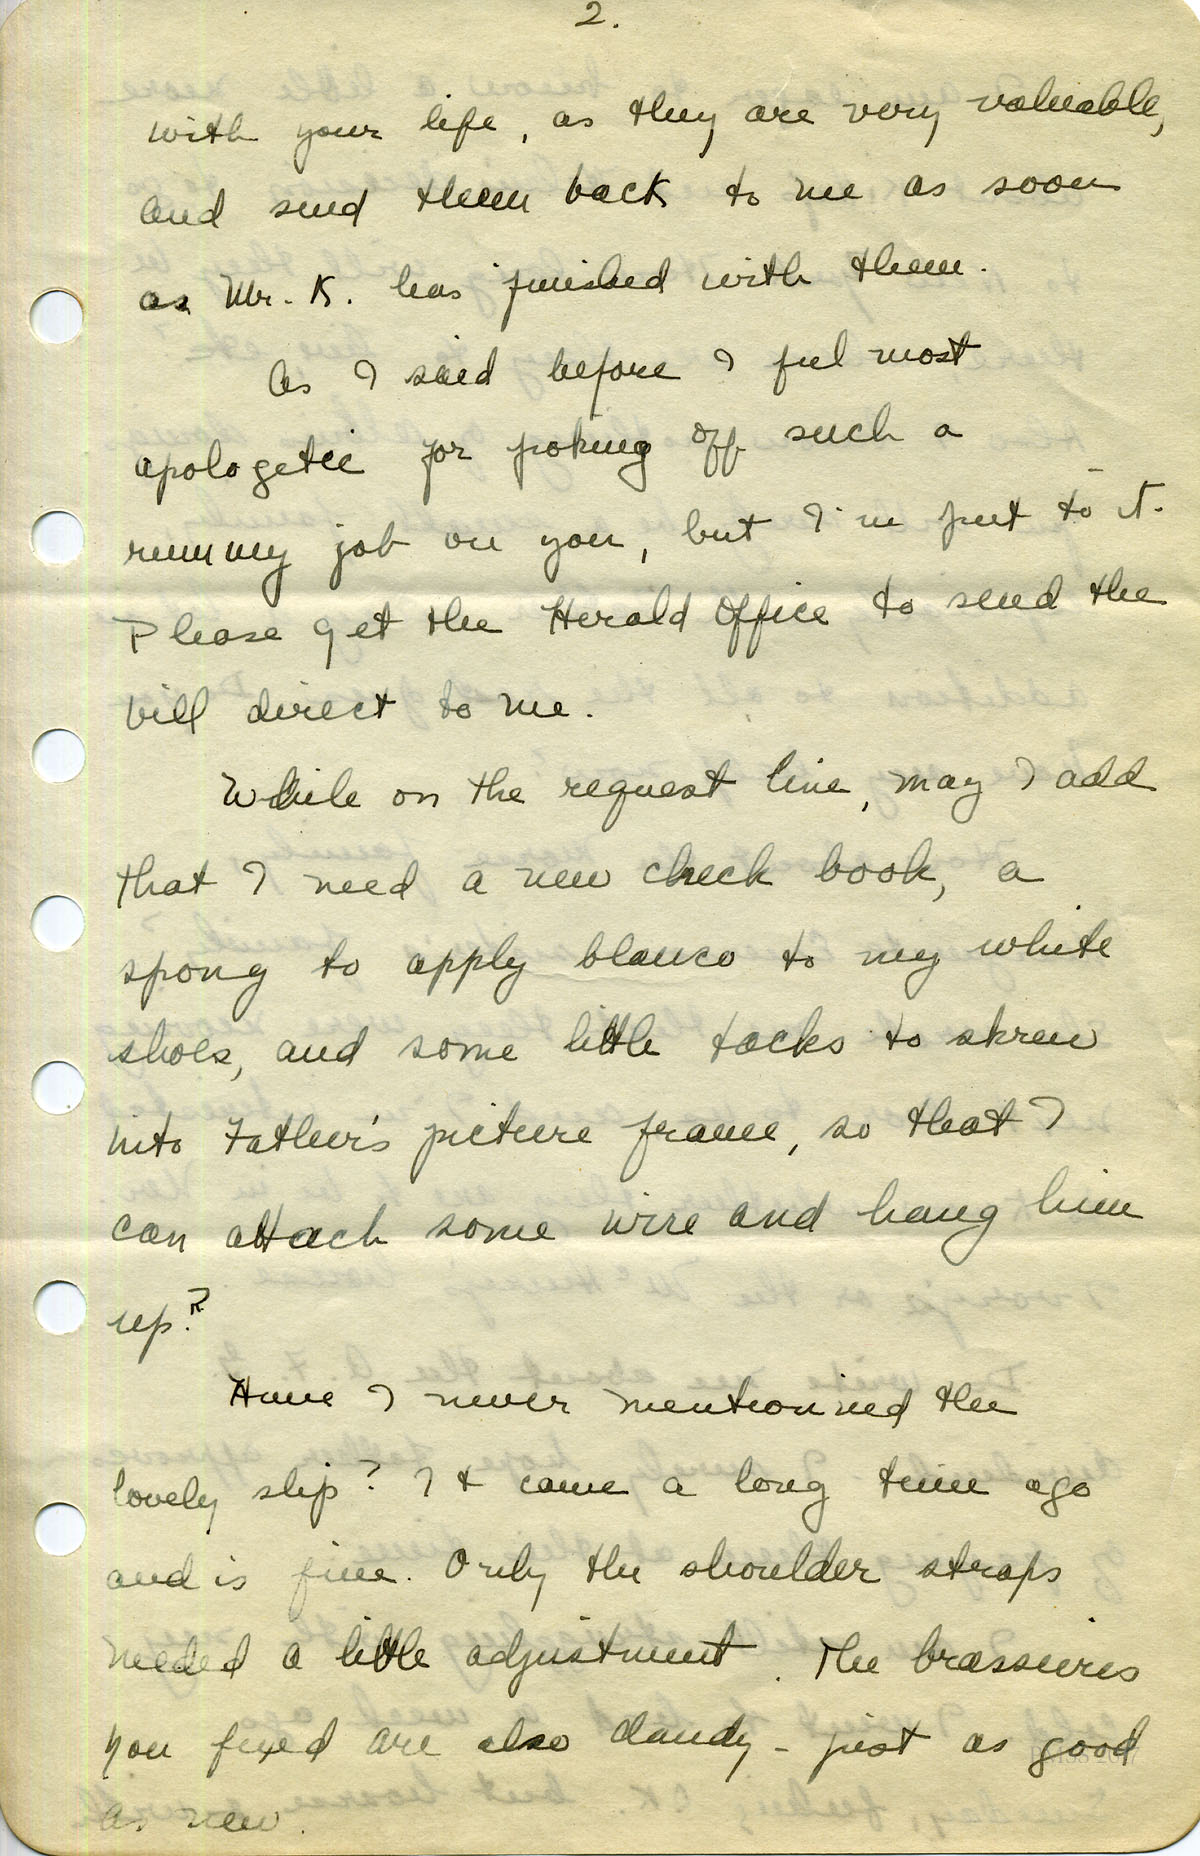 2.
with your life, as they are very valuable,
and send them back to me as soon
as Mr. K. has finished with them.
As I said before I feel most
apologetic for poking off such a
rummy job on you, but I'm put to it.
Please get the Herald Office to send the
bill direct to me.
While on the request line, may I add
that I need a new check book, a
spong to apply blanco to my white
shoes, and some little tacks to skrew
into Father's picture frame, so that I
can attach some wire and hang him
up?
Have I never mentioned the
lovely slip? It came a long time ago
and is fine. Only the shoulder straps
needed a little adjustment. The brassieres
you fixed are also dandy - just as good
as new.